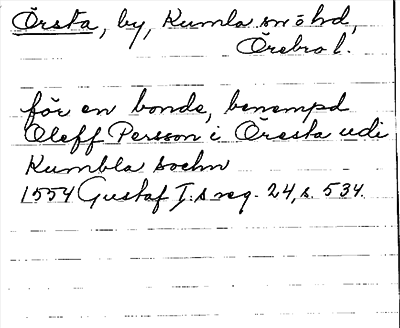 Örsta, by, Kumla sn o hd,
Örebro l.
för en bonde, benempd
Oleff Persson i Öresta udi
Kumbla sochn
1554 Gustaf I:s reg. 24, s. 534.